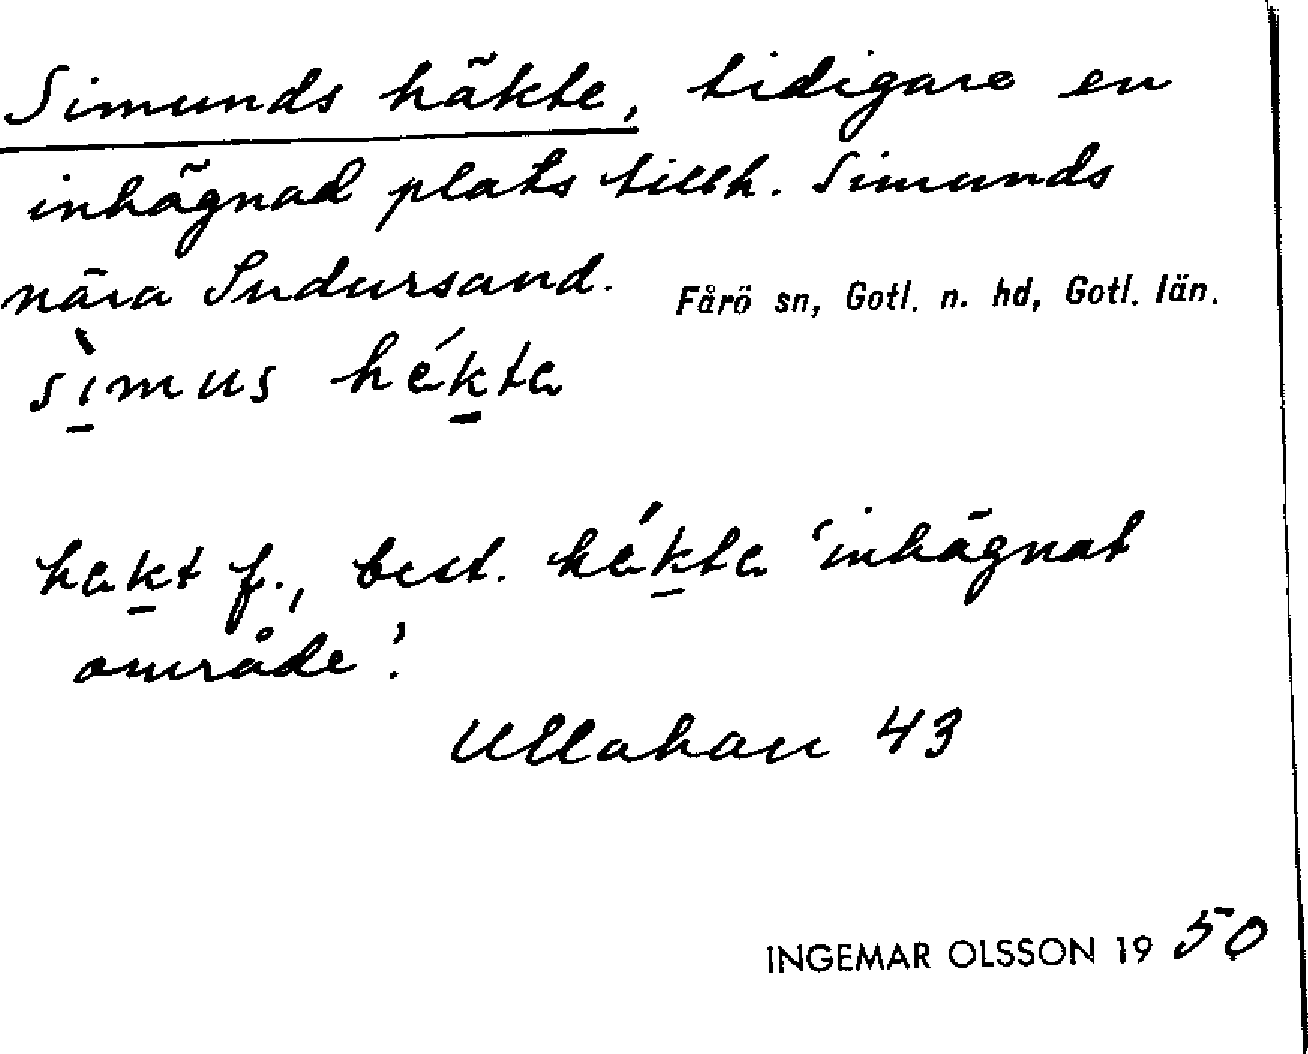 Simunds häkte, tidigare en
inhägnad plats tillh. Simunds
nära Sudursand. Fårö sn, Gotl. n. hd, Gotl. län.
sìmus hékta
hekt f., best. hékta 'inhägnat
område'.
Ullahau 43
INGEMAR OLSSON 19 50